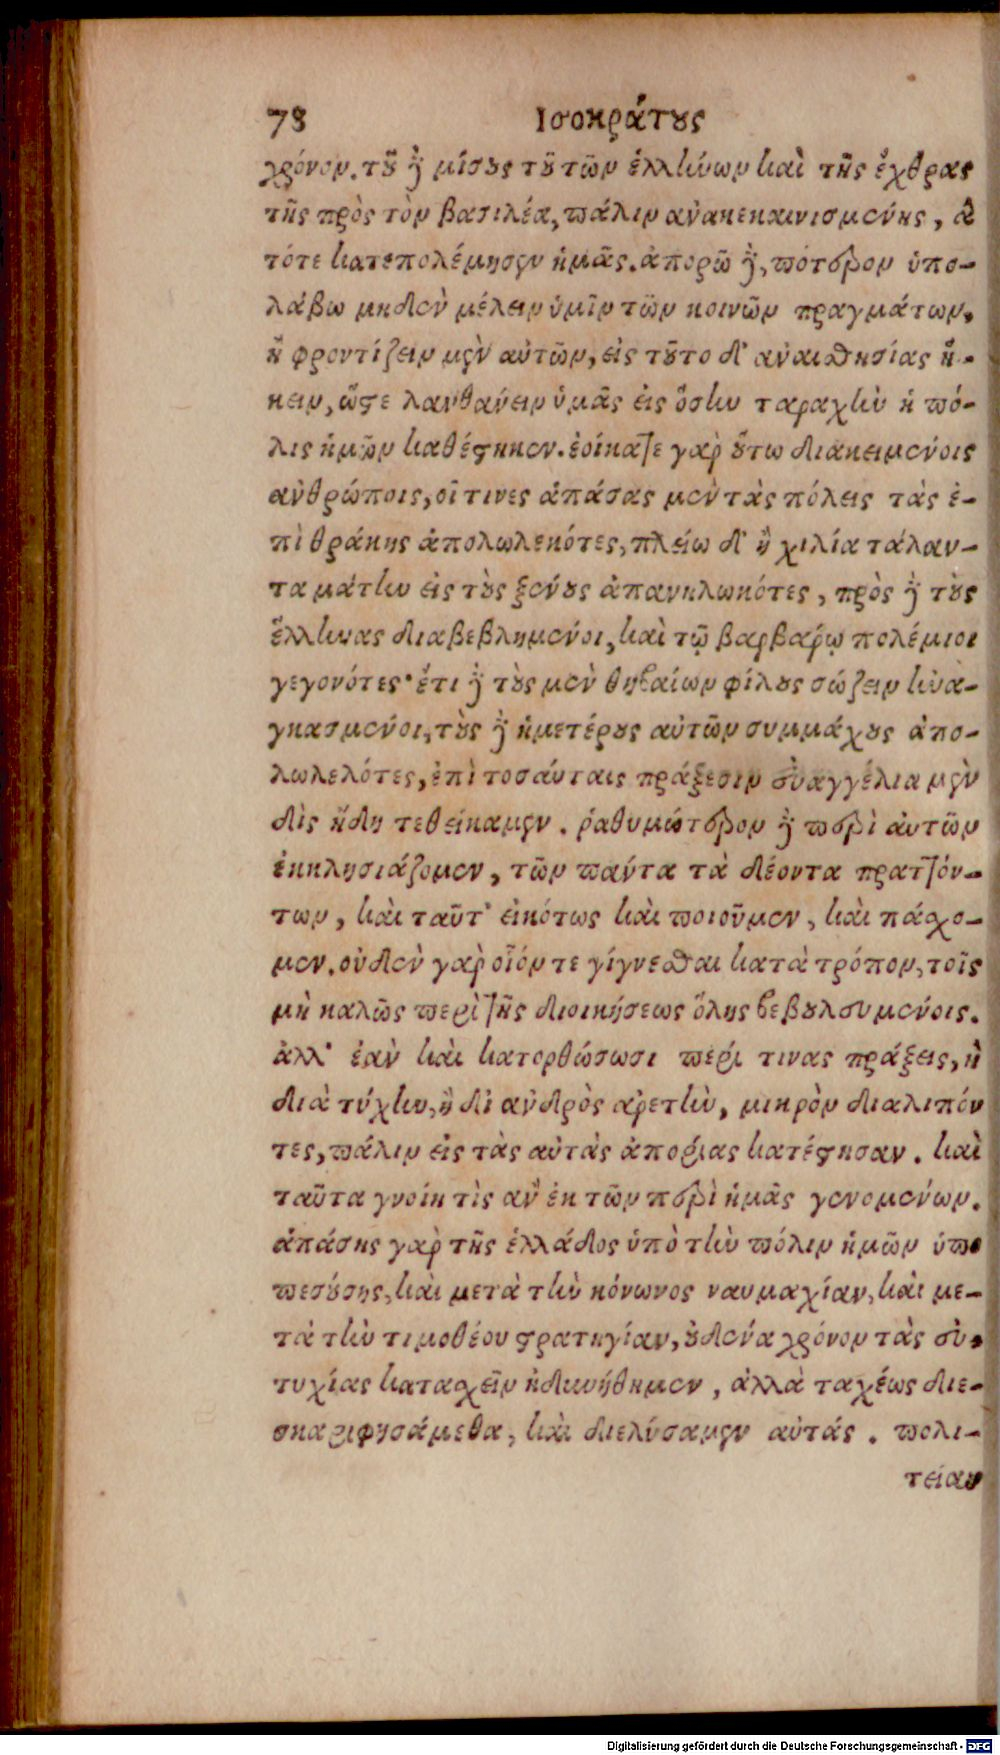 78 Ισοκράτους
χρόνον. τοῦ δὲ μίσους τοῦ τῶν ἑλλήνων καὶ τῆς ἔχθρας
τῆς πρὸς τὸν βασιλέα, πάλιν ἀνακεκαινισμένης, ἃ
τότε κατεπολέμησεν ἡμᾶς. ἀπορῶ δὲ, πότερον ὑπο-
λάβω μηδὲν μέλειν ὑμῖν τῶν κοινῶν πραγμάτων,
ἢ φροντίζειν μὲν αὐτῶν, εἰς τοῦτο δ' ἀναισθησίας ἥ-
κειν, ὥστε λανθάνειν ὑμᾶς εἰς ὅσην ταραχὴν ἡ πό-
λις ἡμῶν καθέστηκεν. ἐοίκατε γὰρ οὕτω διακειμένοις
ἀνθρώποις, οἵτινες ἁπάσας μὲν τὰς πόλεις τὰς ἐ-
πὶ θράκης ἀπολωλεκότες, πλείω δ' ἢ χιλία τάλαν-
τα μάτην εἰς τοὺς ξένους ἀπανηλωκότες, πρὸς δὲ τοὺς
ἕλληνας διαβεβλημένοι, καὶ τῷ βαρβάρῳ πολέμιοι
γεγονότες· ἔτι δὲ τοὺς μὲν θηβαίων φίλους σώζειν ἠνα-
γκασμένοι, τοὺς δὲ ἡμετέρους αὐτῶν συμμάχους ἀπο-
λωλελότες, ἐπὶ τοσαύταις πράξεσιν εὐαγγέλια μὲν
δὶς ἤδη τεθείκαμεν. ῥαθυμώτερον δὲ περὶ αὐτῶν
ἐκκλησιάζομεν, τῶν πάντα τὰ δέοντα πραττόν-
των, καὶ ταῦτ' εἰκότως καὶ ποιοῦμεν, καὶ πάσχο-
μεν. οὐδὲν γὰρ οἷόν τε γίγνεσθαι κατὰ τρόπον, τοῖς
μὴ καλῶς περὶ τῆς διοικήσεως ὅλης βεβουλευμένοις.
ἀλλ' ἐὰν καὶ κατορθώσωσι περί τινας πράξεις, ἢ
διὰ τύχην, ἢ δι' ἀνδρὸς ἀρετὴν, μικρὸν διαλιπόν
τες, πάλιν εἰς τὰς αὐτὰς ἀπορίας κατέστησαν. καὶ
ταῦτα γνοίη τὶς ἂν ἐκ τῶν περὶ ἡμᾶς γενομένων.
ἁπάσης γὰρ τῆς ἑλλάδος ὑπὸ τὴν πόλιν ἡμῶν ὑπο
πεσούσης, καὶ μετὰ τὴν κόνωνος ναυμαχίαν, καὶ με-
τὰ τὴν τιμοθέου στρατηγίαν, οὐδένα χρόνον τὰς εὐ-
τυχίας κατασχεῖν ἠδυνήθημεν, ἀλλὰ ταχέως διε-
σκαριφησάμεθα, καὶ διελύσαμεν αὐτάς. πολι-
τείαν
Digitalisierung gefördert durch die Deutsche Forschungsgemeinschaft - DFG